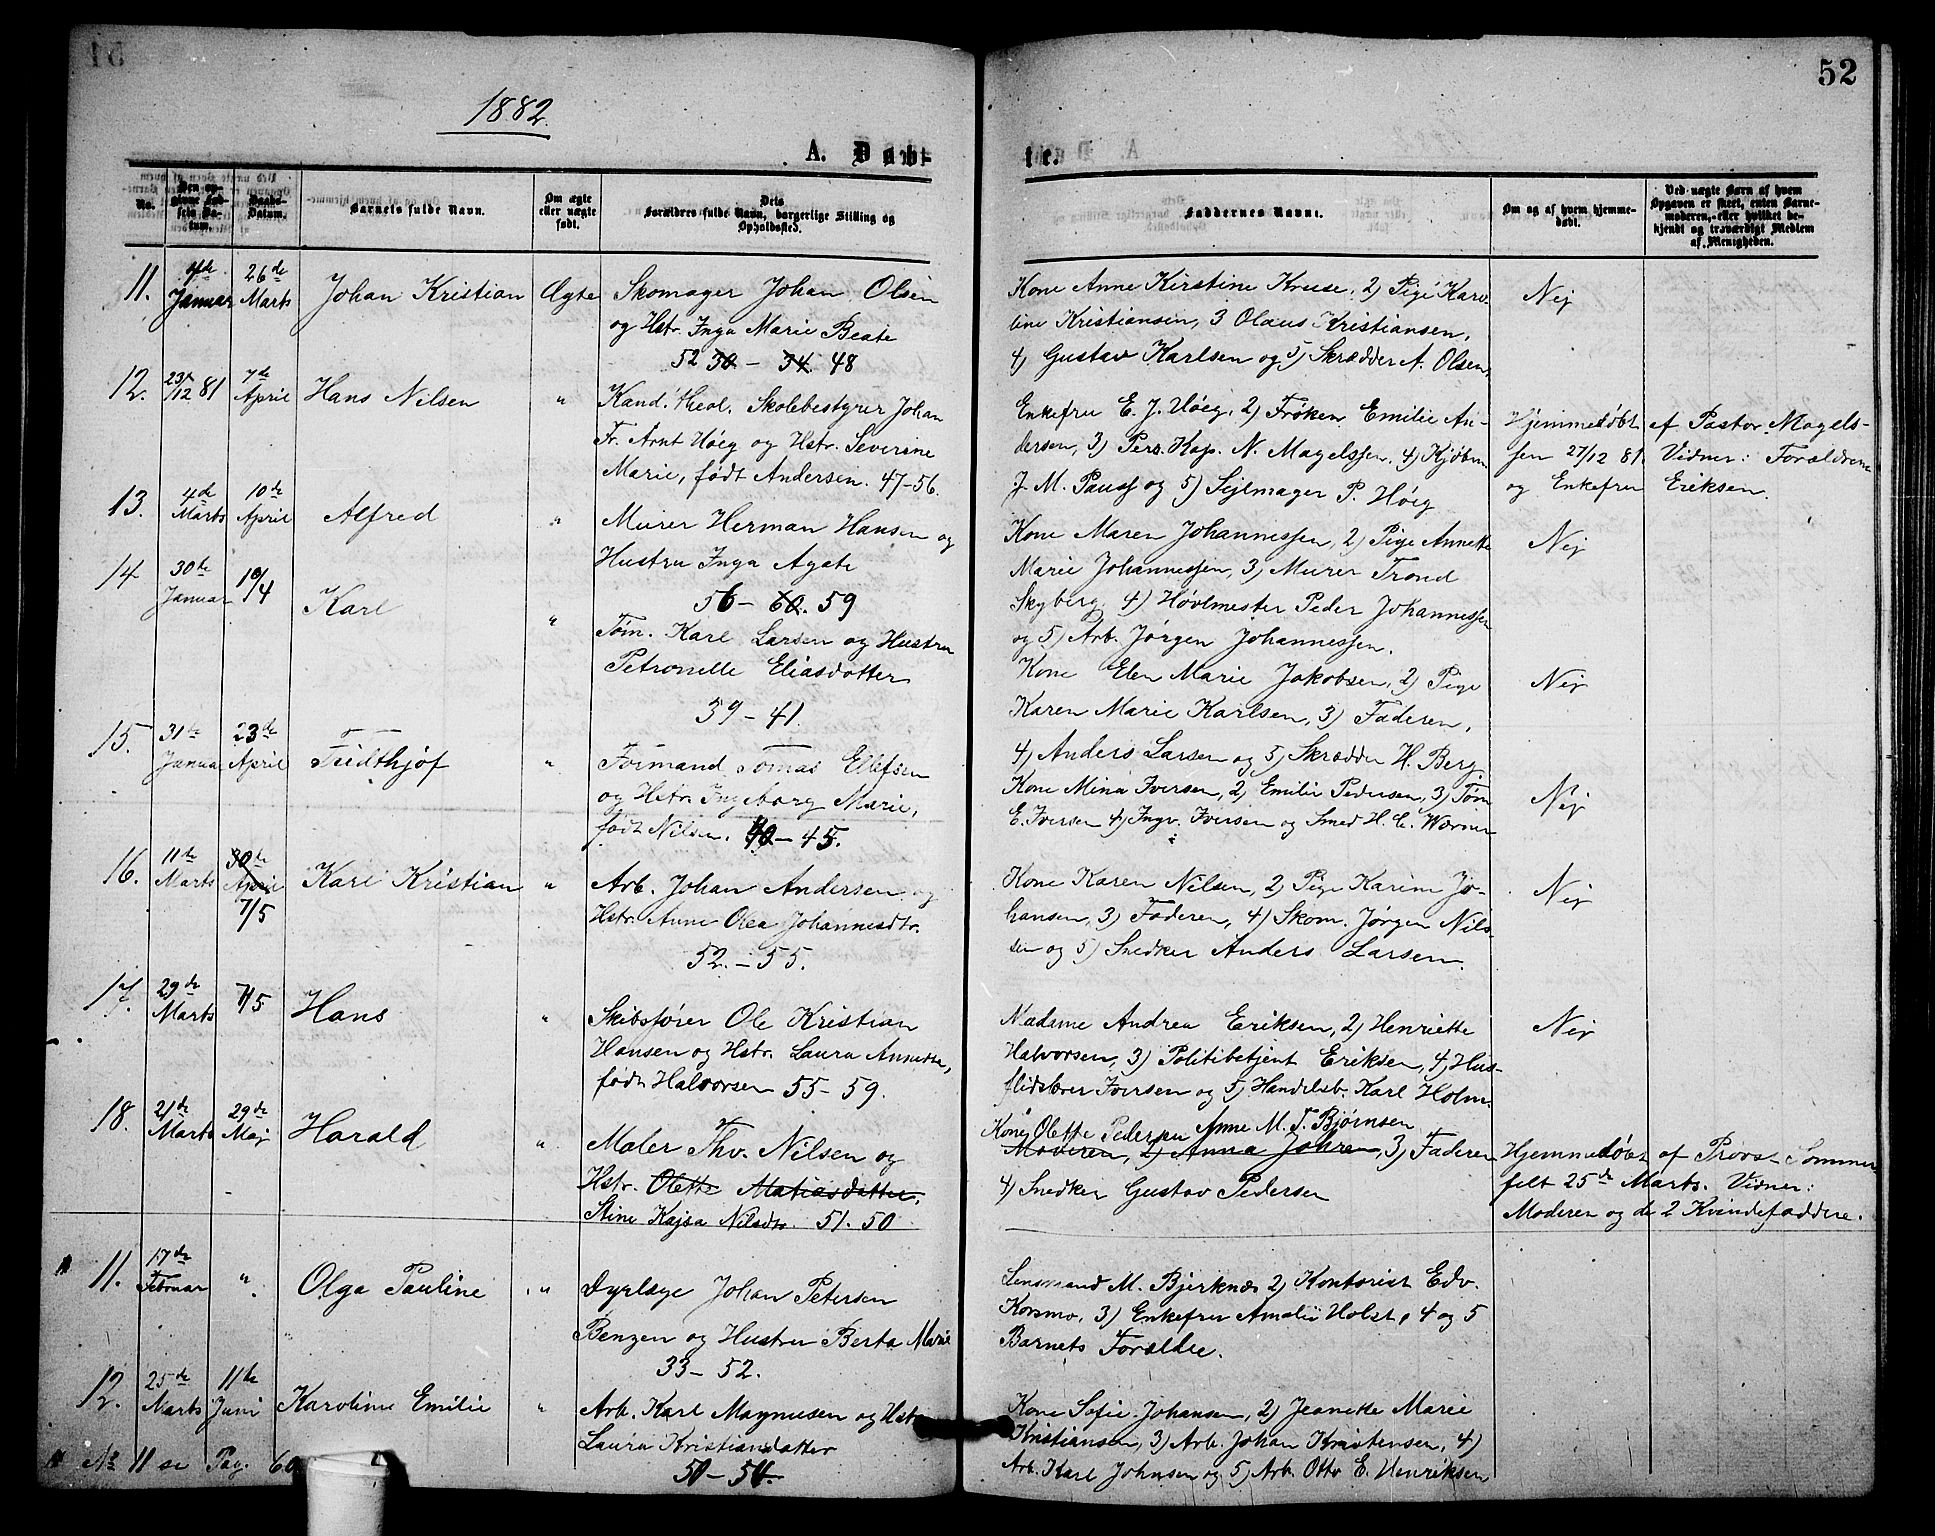 52
1882.
A. Døbte.
No.
Den opgivne Fødsels Datum.
Daabs-Datum.
Barnets fulde Navn.
Om ægte eller uægte født.
Dets Forældres fulde Navn, borgerlige Stilling og Opholdssted.
Faddernes Navne.
Om og af hvem hjemmedøbt.
Ved uægte Børn af hvem Opgaven er skeet, enten Barnemoderen, eller hvilket bekjendt og troværdigt Medlem af Menigheden.
11. 4de Januar 26de Marts Johan Kristian Ægte
Skomager Johan Olsen
og Hstr. Inga Marie Beate
52 30 - 34. 48
Kone Anne Kirstine Kruse, 2) Pige Karo-
line Kristiansen, 3 Olaus Kristiansen,
4) Gustav Karlsen og 5) Skrædder A. Olsen,
Nej
12. 23/12 81 7de April Hans Nilsen "
Kand. theol. Skolebestyrer Johan
Fr. Arnt Høeg og Hstr. Severine
Marie, født Andersen. 47-56.
Enkefru E. J. Høeg, 2) Frøken Emilie An-
dersen, 3) Pers. Kap. N. Magelssen, 4) Kjøbm.
J. M. Pauss og 5) Sejlmager P. Høeg
Hjemmedøbt af Pastor Magels-
sen 27/12 81. Vidner: Forældrene
og Enkefru Eriksen.
13. 4de Marts 10de April Alfred "
Murer Herman Hansen og
Hustru Inga Agate
56 - 60. 59
Kone Maren Johannessen, 2) Pige Annette
Marie Johannessen, 3) Murer Trond
Skyberg 4) Høvlmester Peder Johannessen
og 5) Arb. Jørgen Johannessen.
Nej
14 30te Januar 10/4 Karl "
Tøm. Karl Larsen og Hustru
Petronelle Eliasdotter
39 - 41.
Kone Elen Marie Jakobsen, 2) Pige
Karen Marie Karlsen, 3) Faderen,
4) Anders Larsen og 5) Skrædder H. Berg.
Nej
15. 31te Januar 23de April Fridthjof "
Formand Tomas Ellefsen
og Hstr. Ingeborg Marie,
født Nilsen. 40 - 45.
Kone Mina Iversen, 2) Emilie Pedersen, 3) Tøm
E. Iversen 4) Ingv. Iversen og Smed H. C. Wærner
Nej
16. 11te Marts 30te April 7/5 Karl Kristian "
Arb. Johan Andersen og
Hstr. Anne Olea Johannesdtr.
52. - 55.
Kone Karen Nilsen, 2) Pige Karine Jo-
hansen, 3) Faderen, 4) Skom. Jørgen Nils-
sen og 5) Snedker Anders Larsen.
Nej
17. 29de Marts 7/5 Hans "
Skibsfører Ole Kristian
Hansen og Hstr. Laura Annette,
født Halvorsen 55 - 59.
Madame Andrea Eriksen, 2) Henriette
Halvorsen, 3) Politibetjent Eriksen, 4) Hus-
flidslærer Iversen og 5) Handelsb. Karl Holm.
Nej
18. 21de Marts 29de Maj Harald "
Maler Thv. Nilsen og
Hstr. Olette Matiasdatter,
Stine Kajsa Nilsdtr. 51. 50
Kone, Olette Pedersen Anne M. T. Bjørnsen
Moderen, 2) Anna Johren, 3) Faderen
4) Snedker Gustav Pedersen
Hjemmedøbt af Provst Sommer
felt 25de Marts. Vidner:
Moderen og de 2 Kvindefaddere.
11. 17de Februar " Olga Pauline "
Dyrlæge Johan Petersen
Benzen og Hustru Berta Marie
33 - 52.
Lensmand M. Bjerknæs 2) Kontorist Edv.
Korsmo, 3) Enkefru Amalie Holst, 4 og 5
Barnets Forældre.
12. 25de Marts 11te Juni Karoline Emilie "
Arb. Karl Magnusen og Hstr.
Laura Kristiansdatter
50 - 54.
Kone Sofie Johansen, 2) Jeanette Marie
Kristiansen, 3) Arb. Johan Kristensen, 4)
Arb. Karl Johnsen og 5) Arb. Otto E. Henriksen
No 11 se Pag. 60